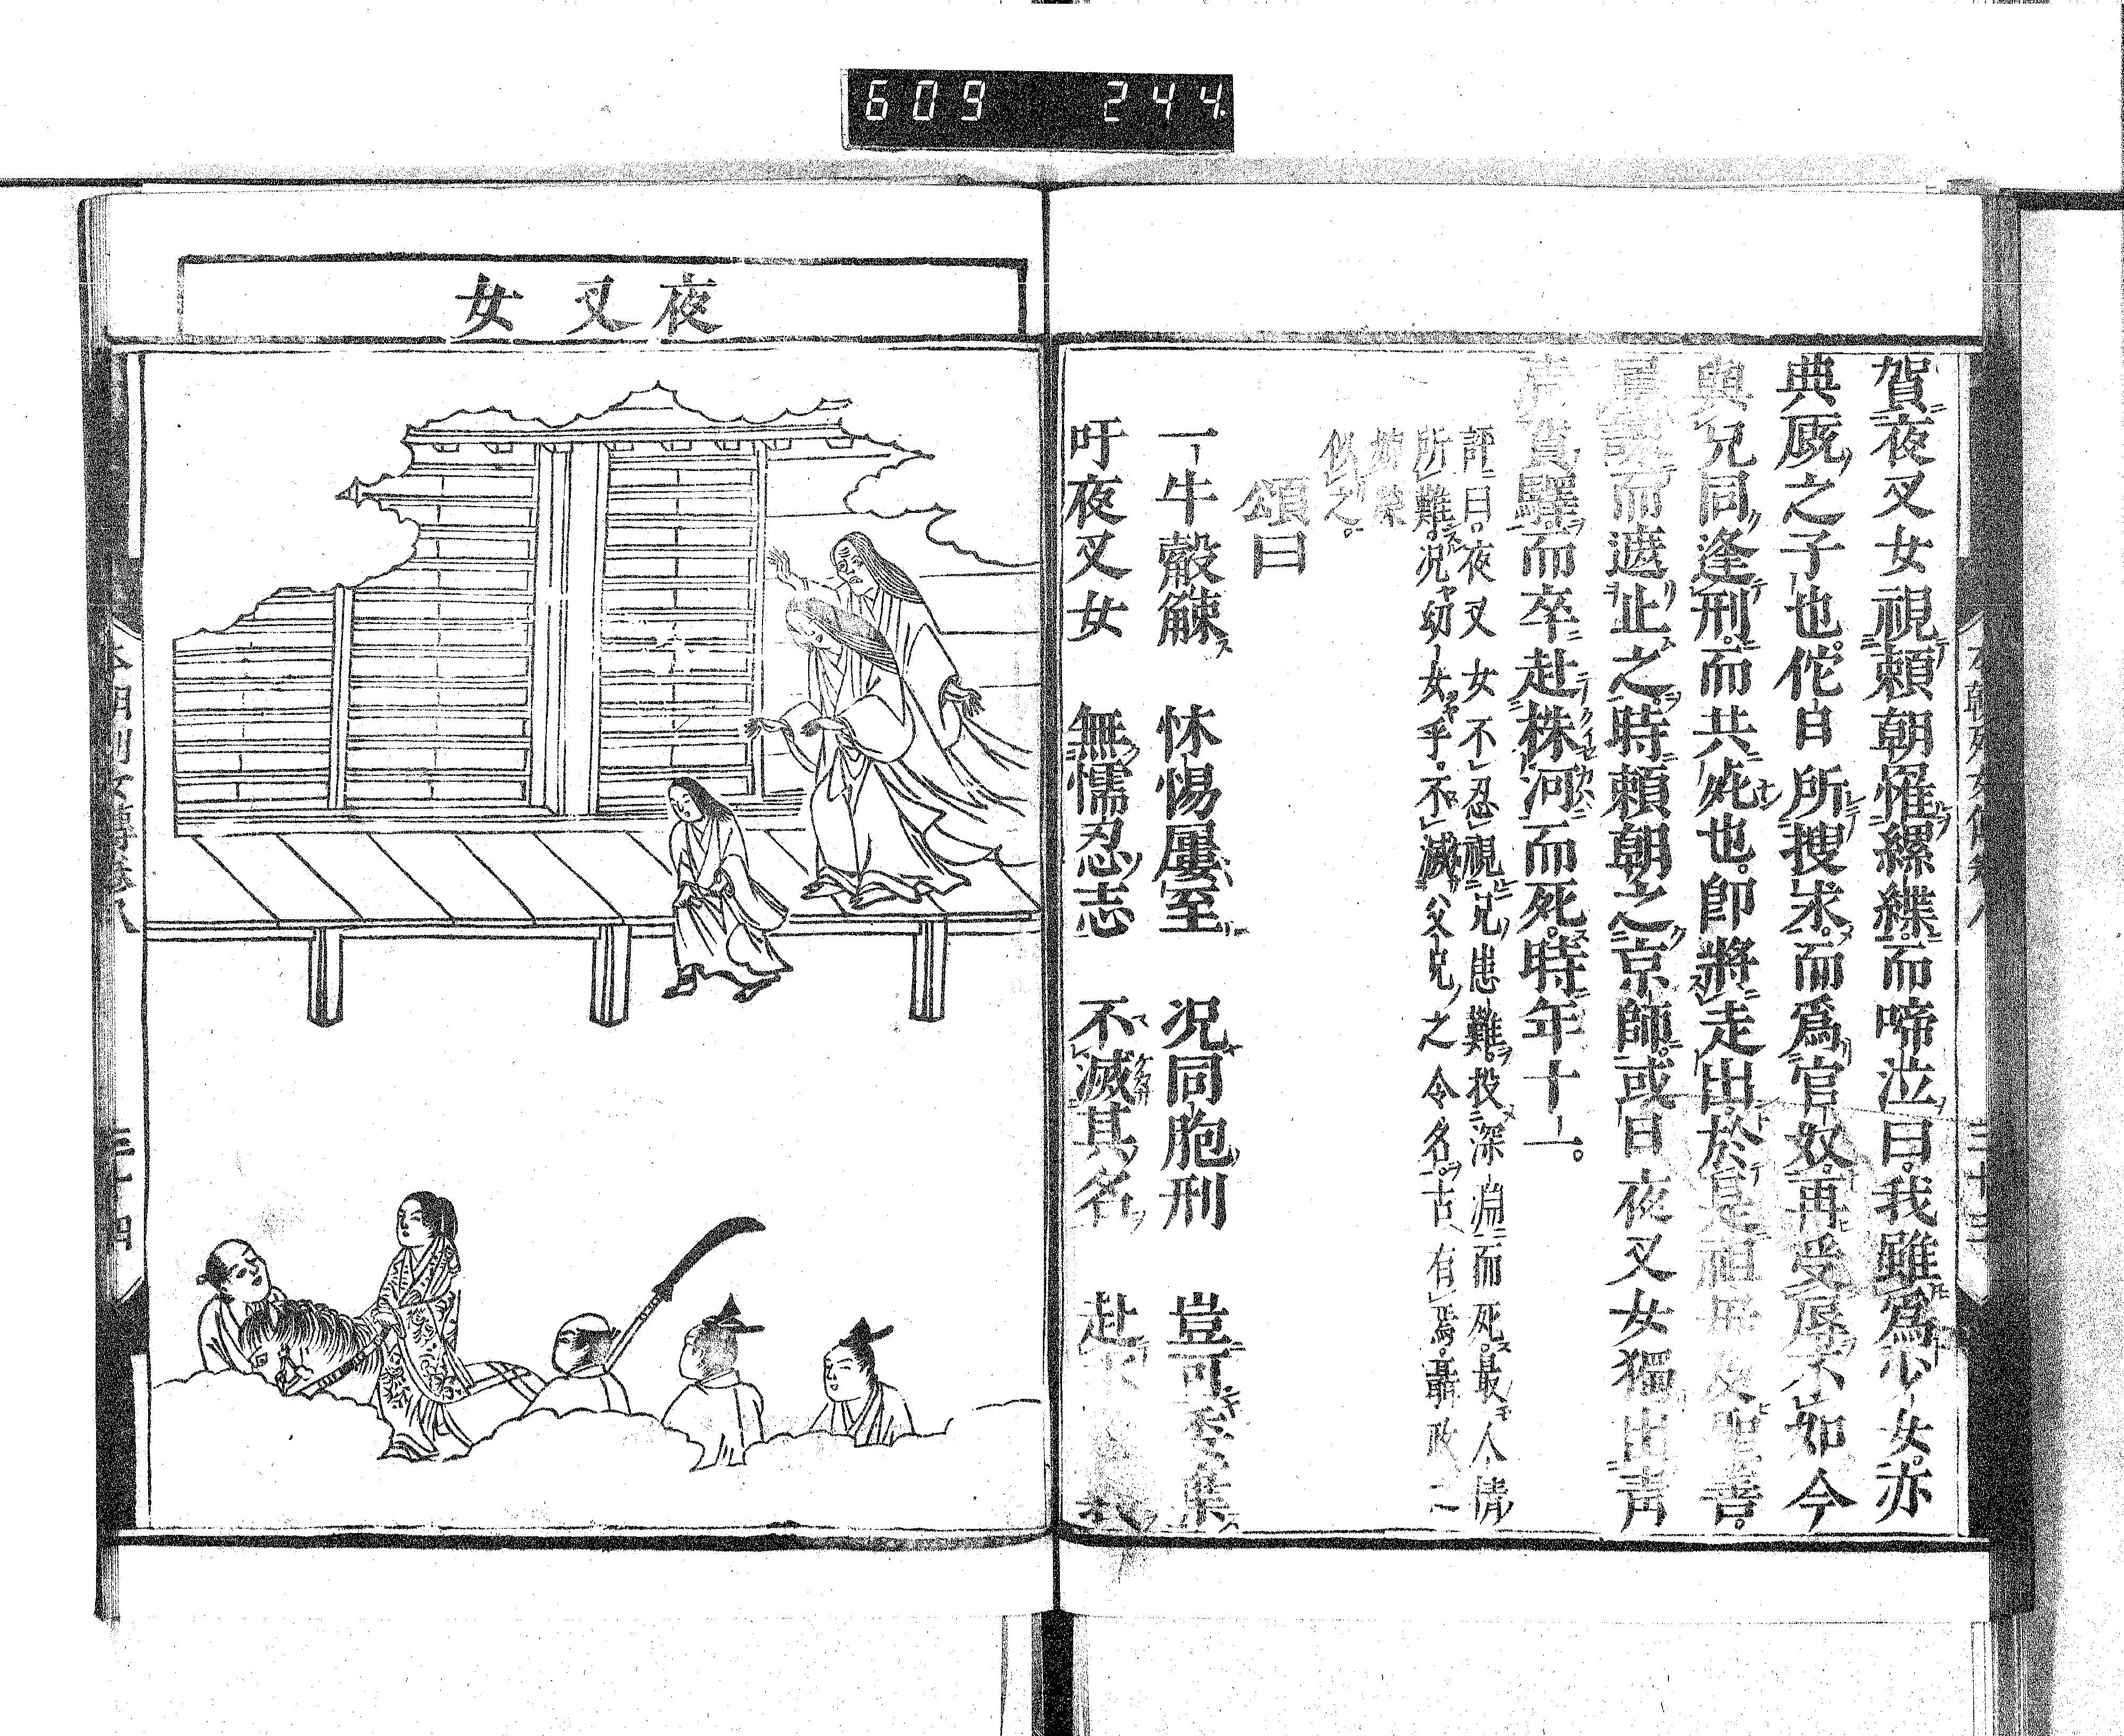 609 244
賀夜叉女視頼朝罹縲紲而啼泣曰我雖爲少女亦
典厩之子也佗日所搜求而爲官奴再受辱不如今
與兄同逢刑而共死也卽將走出於是祖母及聖善
而遮止之時頼朝之京師或曰夜叉女獨出靑
驛而卒赴株河而死時年十一
評曰夜叉女不忍視兄患難投深淵而死最人情
所難况幼女乎不滅父兄之令名古有焉聶政之
姉榮
似之
頌曰
一牛觳觫 怵惕屢至 况同胞刑 豈可
吁夜叉女 無懦忍志 不滅其名 赴
夜叉女
本朝列女傳卷八
三十三
本朝列女傳卷八
三十四